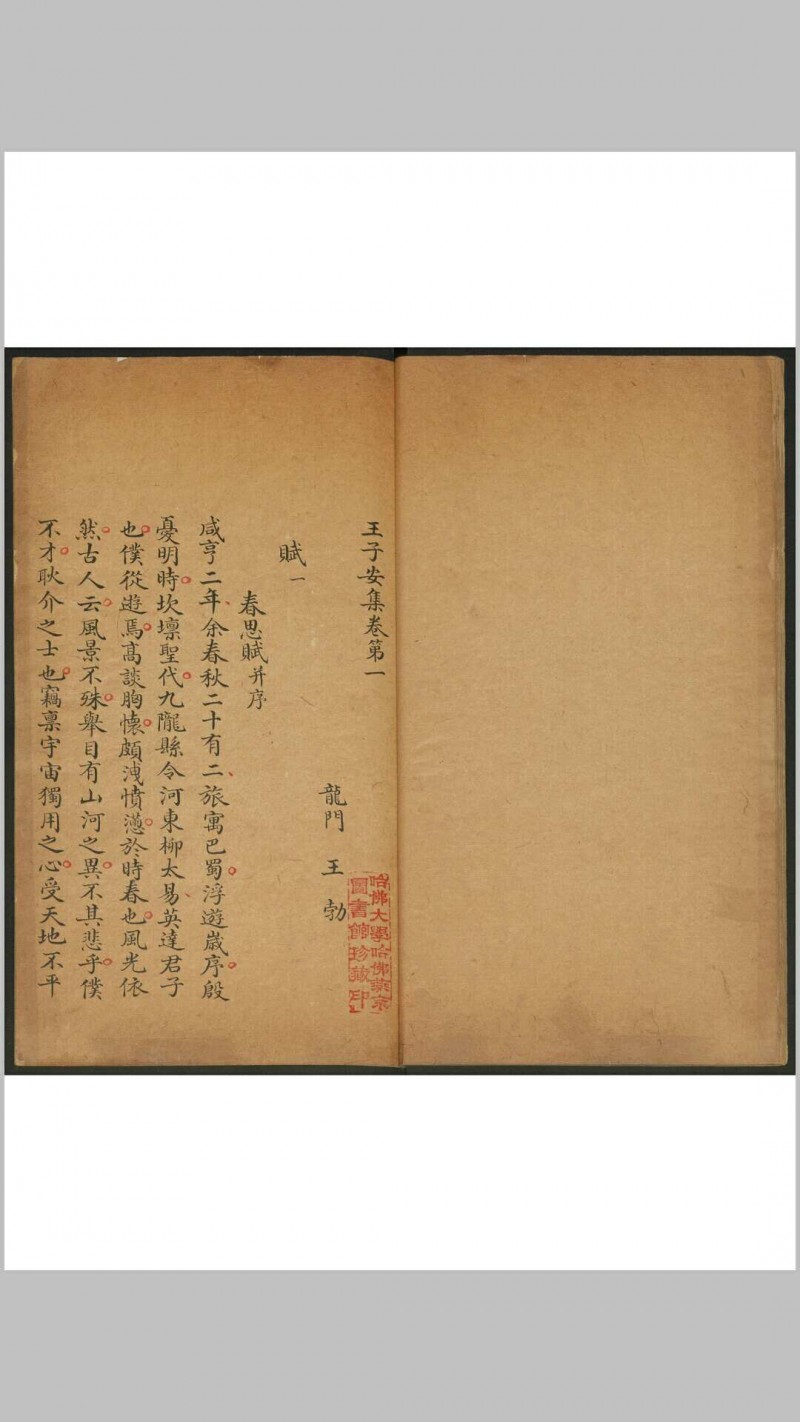 王子安集卷第一
龍門 王 勃
賦一
春思賦并序
咸亨二年余春秋二十有二旅寓巴蜀浮遊歲序殷
憂明時坎壈聖代九隴縣令河東柳太易英達君子
也僕從遊焉高談胸懷頗洩憤懣於時春也風光依
然古人云風景不殊舉目有山河之異不其悲乎僕
不才耿介之士也竊禀宇宙獨用之心受天地不平
哈佛大學哈佛燕京
圖書館珍藏印